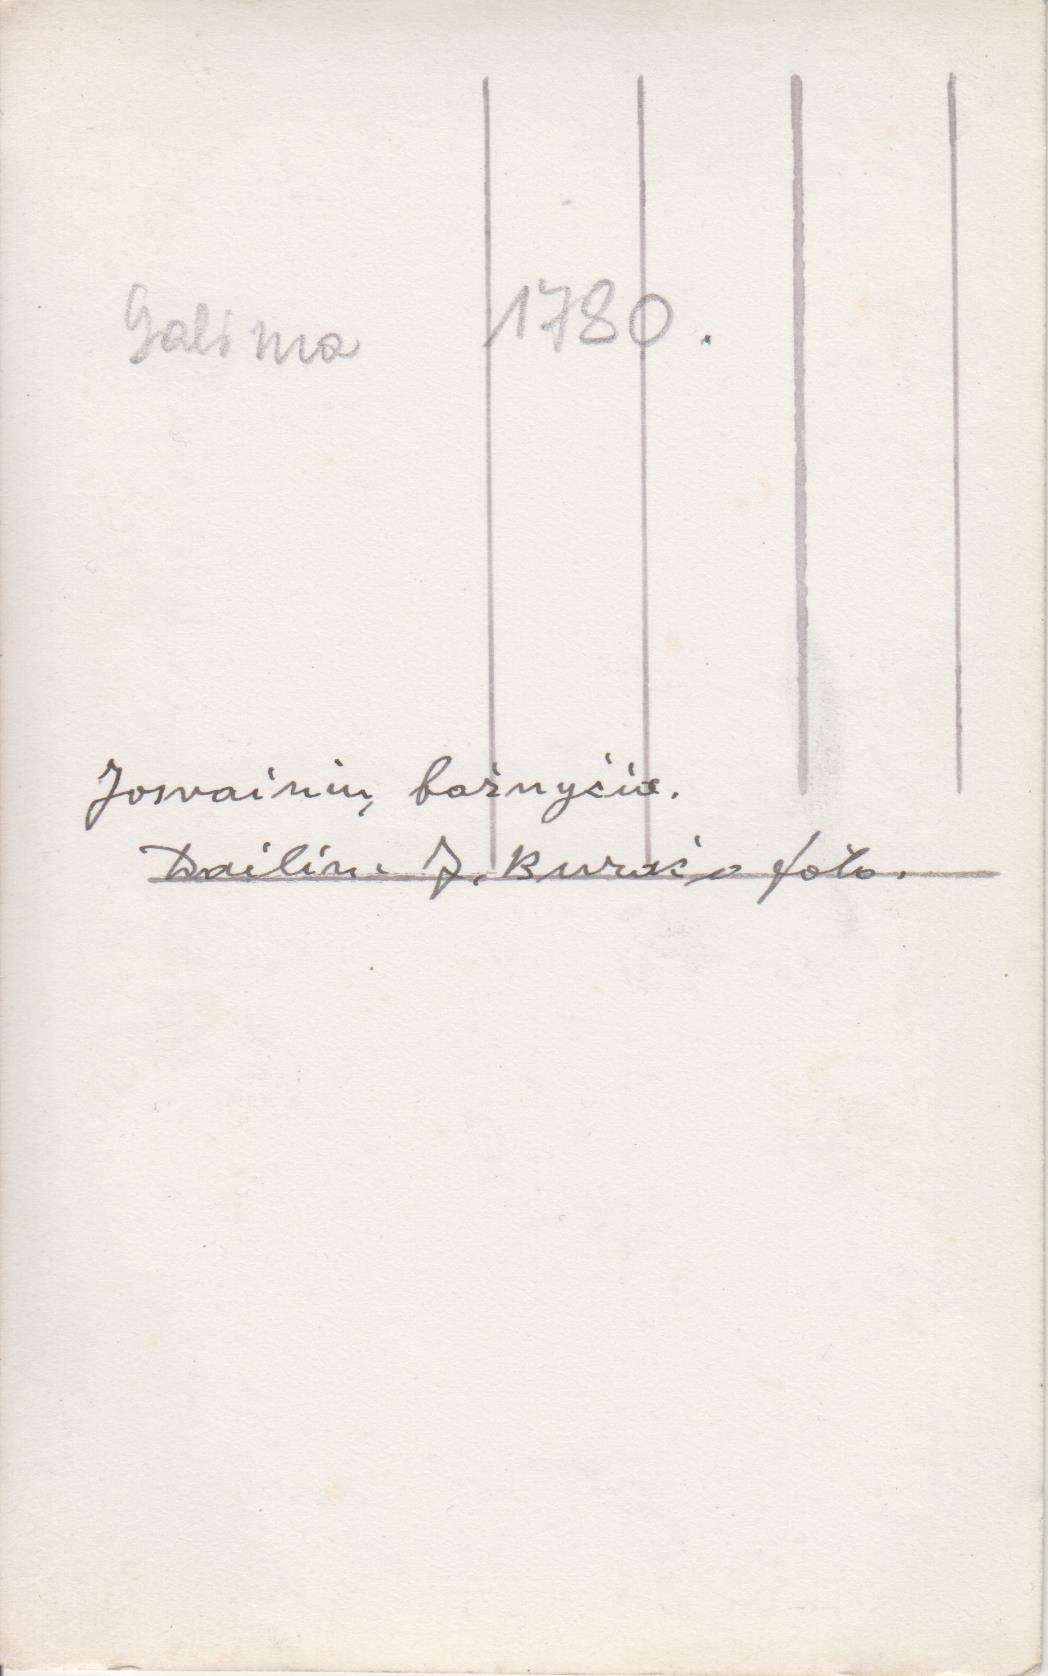 Galima 1780.
Josvainių bažnyčia.
Dailin. J. Buračo foto.